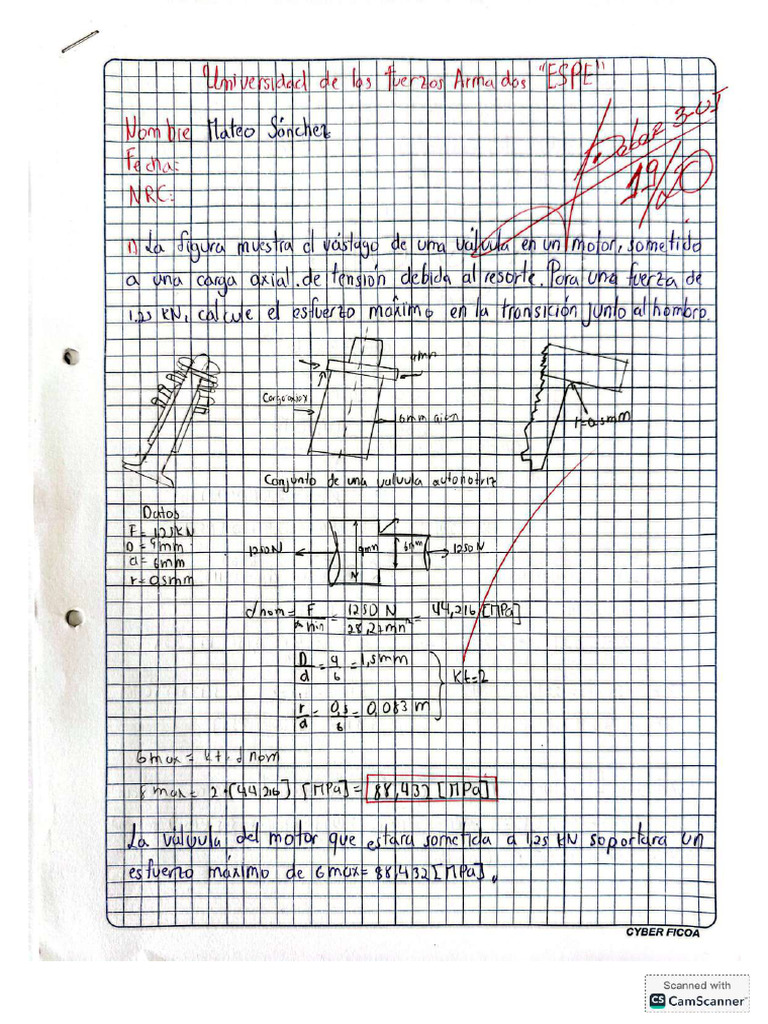 Universidad de las fuerzas Armadas "ESPE"
Nombre Mateo Sánchez
Fecha:
NRC:
19/20
1) La figura muestra el vástago de una válvula en un motor, sometido
a una carga axial. de tensión debida al resorte. Para una fuerza de
1.25 KN, calcule el esfuerzo máximo en la transición junto al hombro.
9mm
Carga axial
6mm
r=0.5mm
Conjunto de una valvula automotriz
Datos
F= 1,25KN
D = 9mm
d = 6mm
r = 0,5mm
1250N
9mm
6mm
1250N
σnom = F/Amin = 1250 N/28,27mm² = 44,216 [MPa]
D/d = 9/6 = 1,5mm
Kt=2
r/d = 0,5/6 = 0,083 m
σmax = Kt · σnom
σmax = 2·[44,216] [MPa] = 88,432 [MPa]
La válvula del motor que estara sometida a 1,25 KN soportara un
esfuerzo máximo de σmax = 88,432 [MPa].
CYBER FICOA
Scanned with
CS CamScanner